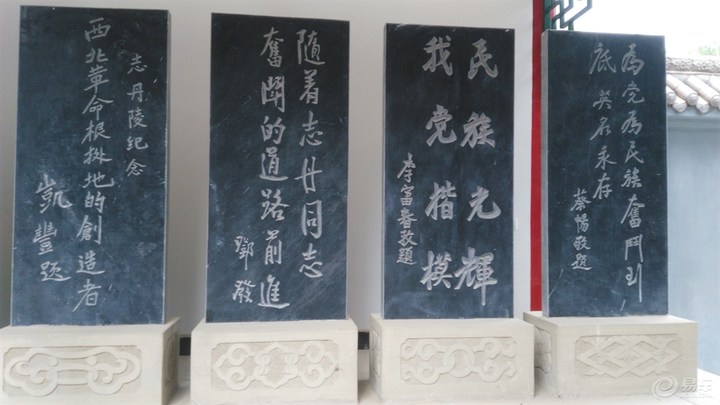 志丹陵纪念
西北革命根据地的創造者
凱豐题
随着志丹同志
奮鬪的道路前進
鄧發
民族光輝
我党楷模
李富春敬題
為党為民族奮鬥到
底英名永存
蔡暢敬題
易车